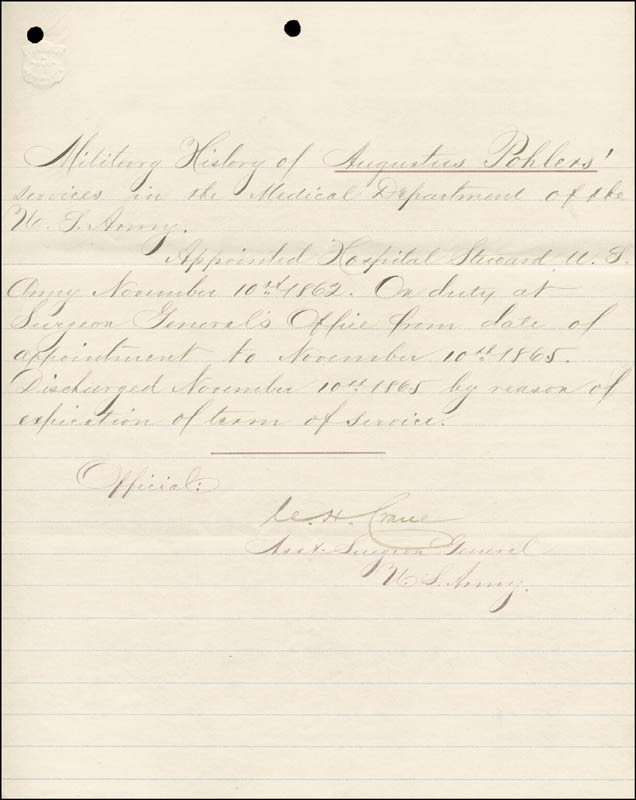 Military History of Augustus Pohlers'
services in the Medical Department of the
U. S. Army.
Appointed Hospital Steward U. S.
Army November 10th 1862. On duty at
Surgeon General's Office from date of
appointment to November 10th 1865.
Discharged November 10th 1865 by reason of
expiration of term of service.
Official:
C. H. Crane
Asst. Surgeon General
U. S. Army.